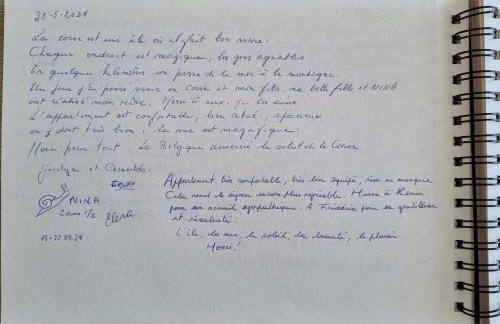 30-5-2024
La corse est une île où il fait bon vivre.
Chaque endroit est magique, les gens agréables
En quelques kilomètres on passe de la mer à la montagne.
Un jour j'ai pensé venir en corse et mon fils, ma belle fille et NINA
ont réalisé mon rêve. Merci à eux. je les aime
L'appartement est confortable, bien situé, spacieux
on y dort très bien, la vue est magnifique.
Merci pour tout. La Belgique remercie le soleil de la Corse
et
NINA
Elena
15-27.05.24
Appartement très confortable, très bien équipé, rien ne manque
Cela rend le séjour encore plus agréable. Merci à
pour son accueil sympathique. A Frédéric pour sa gentillesse
et réactivité.
L'île, la mer, le soleil, la beauté, le plaisir
Merci!